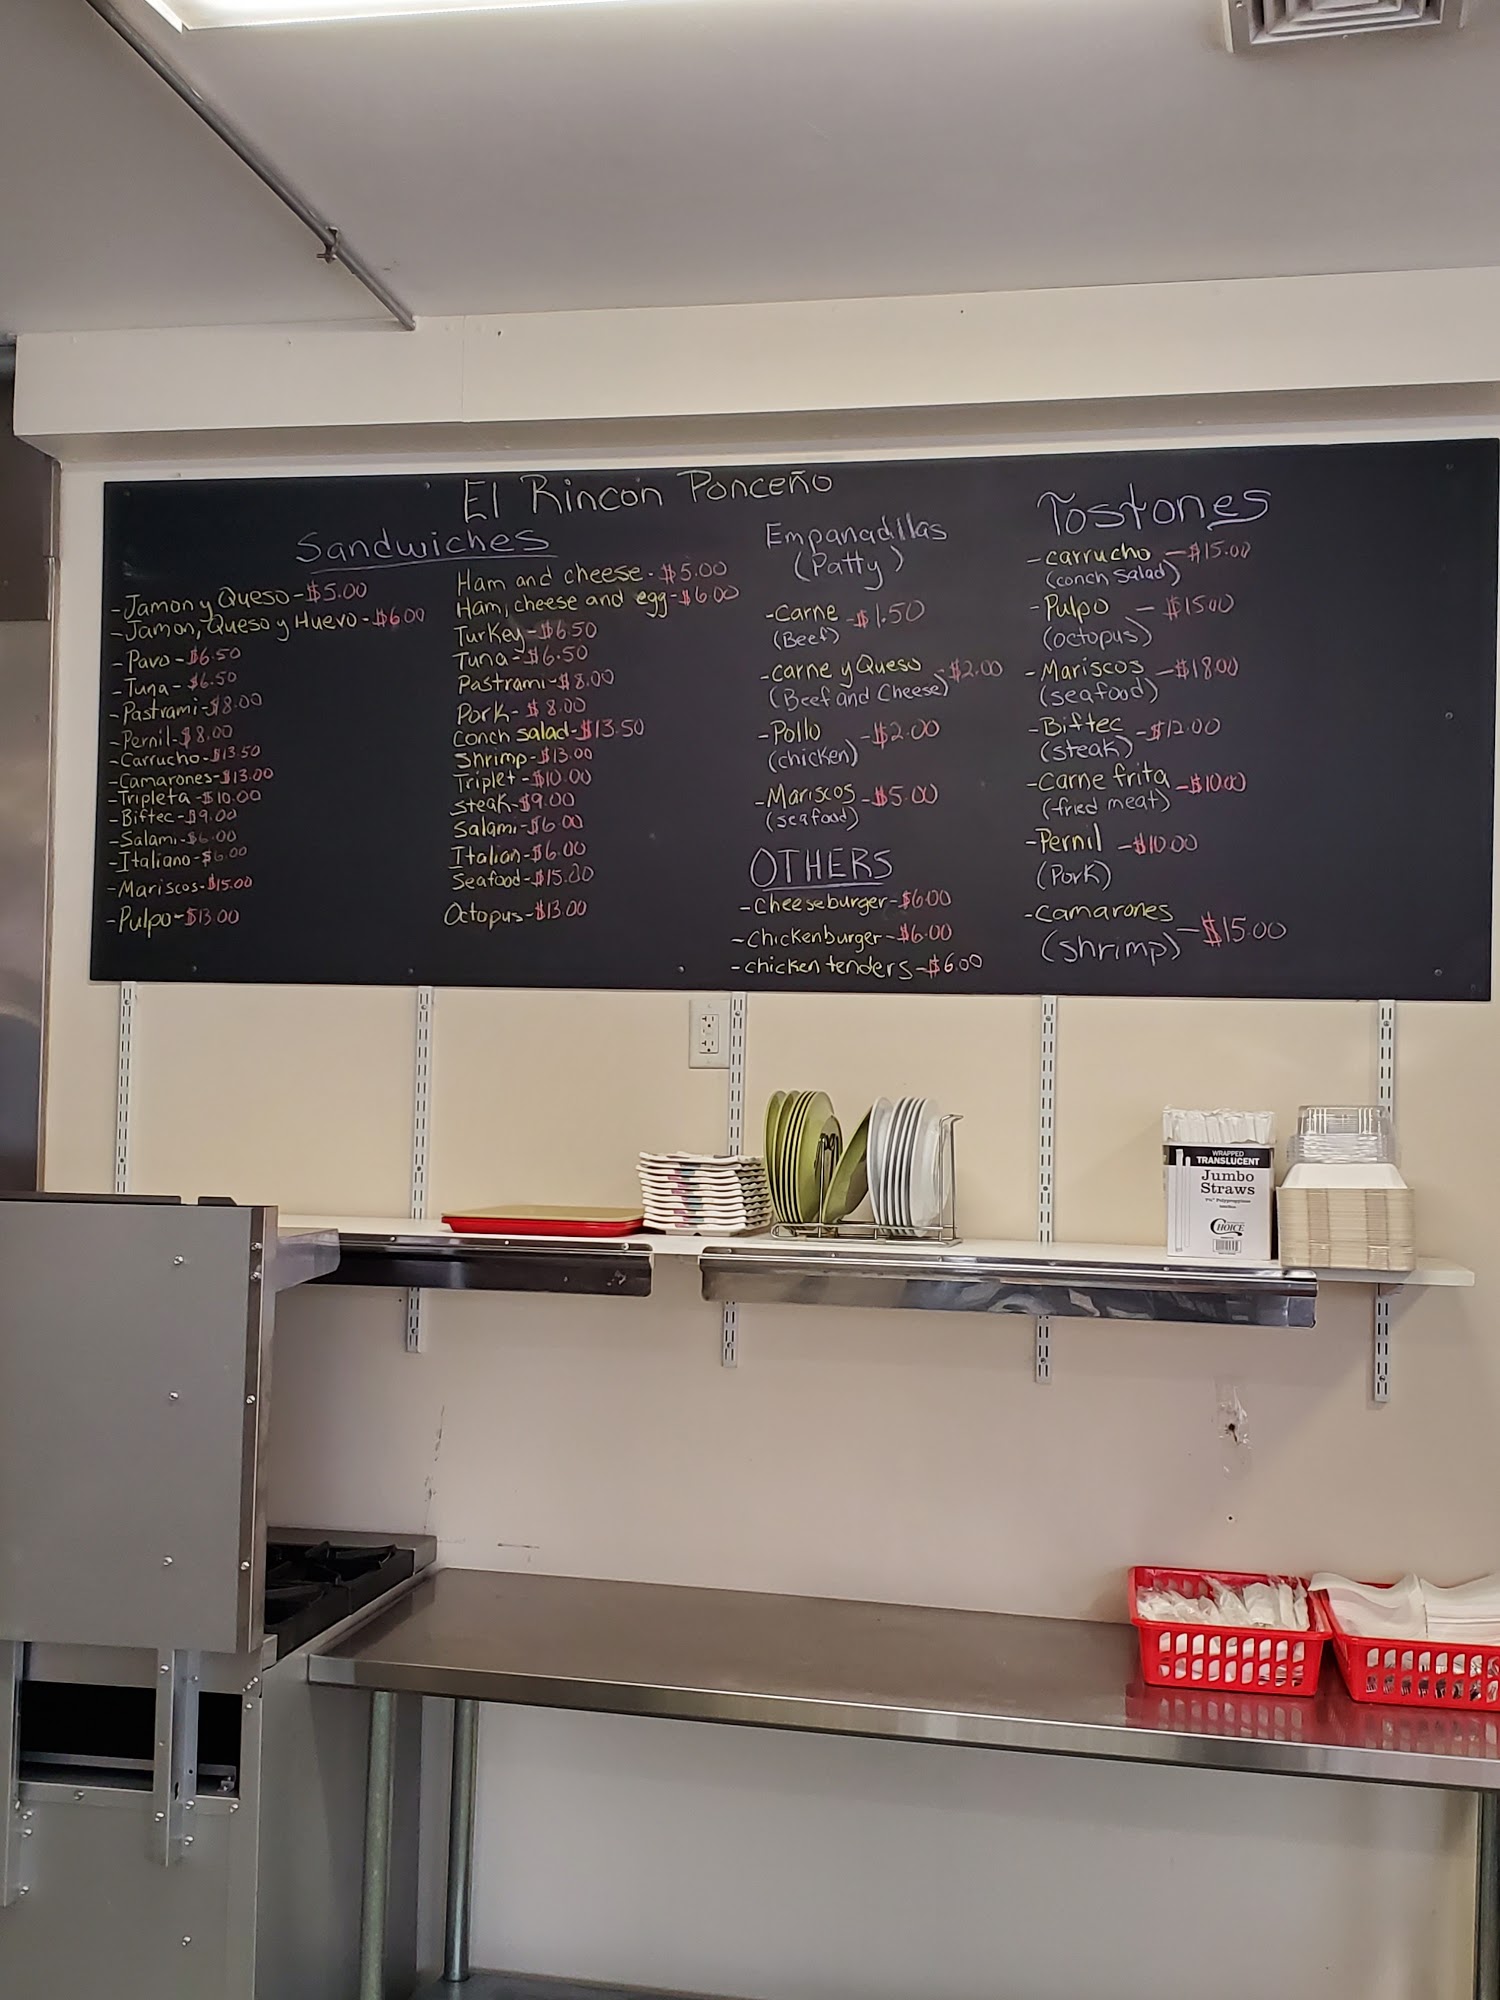 El Rincon Ponceño
Sandwiches
-Jamon y Queso-$5.00
-Jamon, Queso y Huevo-$6.00
-Pavo-$6.50
-Tuna-$6.50
-Pastrami-$8.00
-Pernil-$8.00
-Carrucho-$13.50
-Camarones-$13.00
-Tripleta-$10.00
-Biftec-$9.00
-Salami-$6.00
-Italiano-$6.00
-Mariscos-$15.00
-Pulpo-$13.00
Ham and cheese-$5.00
Ham, cheese and egg-$6.00
Turkey-$6.50
Tuna-$6.50
Pastrami-$8.00
Pork-$8.00
Conch salad-$13.50
Shrimp-$13.00
Triplet-$10.00
Steak-$9.00
Salami-$6.00
Italian-$6.00
Seafood-$15.00
Octopus-$13.00
Empanadillas
(Patty)
-Carne -$1.50
(Beef)
-Carne y Queso -$2.00
(Beef and Cheese)
-Pollo -$2.00
(chicken)
-Mariscos -$5.00
(seafood)
OTHERS
-Cheeseburger-$6.00
-Chickenburger-$6.00
-chicken tenders-$6.00
Tostones
-carrucho -$15.00
(conch salad)
-Pulpo - $15.00
(octopus)
-Mariscos -$18.00
(seafood)
-Biftec -$12.00
(steak)
-Carne frita -$10.00
(fried meat)
-Pernil -$10.00
(Pork)
-Camarones -$15.00
(shrimp)
WRAPPED
TRANSLUCENT
Jumbo
Straws
CHOICE